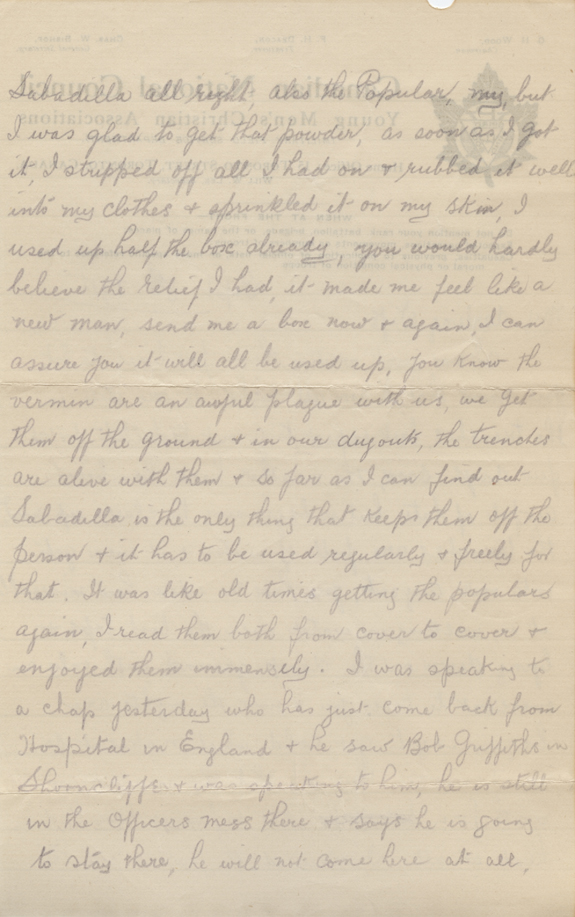 Sabadilla all right, also the Popular, my, but
I was glad to get that powder, as soon as I got
it, I stripped off all I had on & rubbed it well
into my clothes & sprinkled it on my skin, I
used up half the box already, you would hardly
believe the relief I had, it made me feel like a
new man, send me a box now & again, I can
assure you it will all be used up, you know the
vermin are an awful plague with us, we get
them off the ground & in our dugouts, the trenches
are alive with them & so far as I can find out
Sabadilla is the only thing that keeps them off the
person & it has to be used regularly & freely for
that. It was like old times getting the populars
again, I read them both from cover to cover &
enjoyed them immensely. I was speaking to
a chap yesterday who has just come back from
Hospital in England & he saw Bob Griffiths in
Shorncliffe & was speaking to him, he is still
in the Officers mess there & says he is going
to stay there, he will not come here at all,